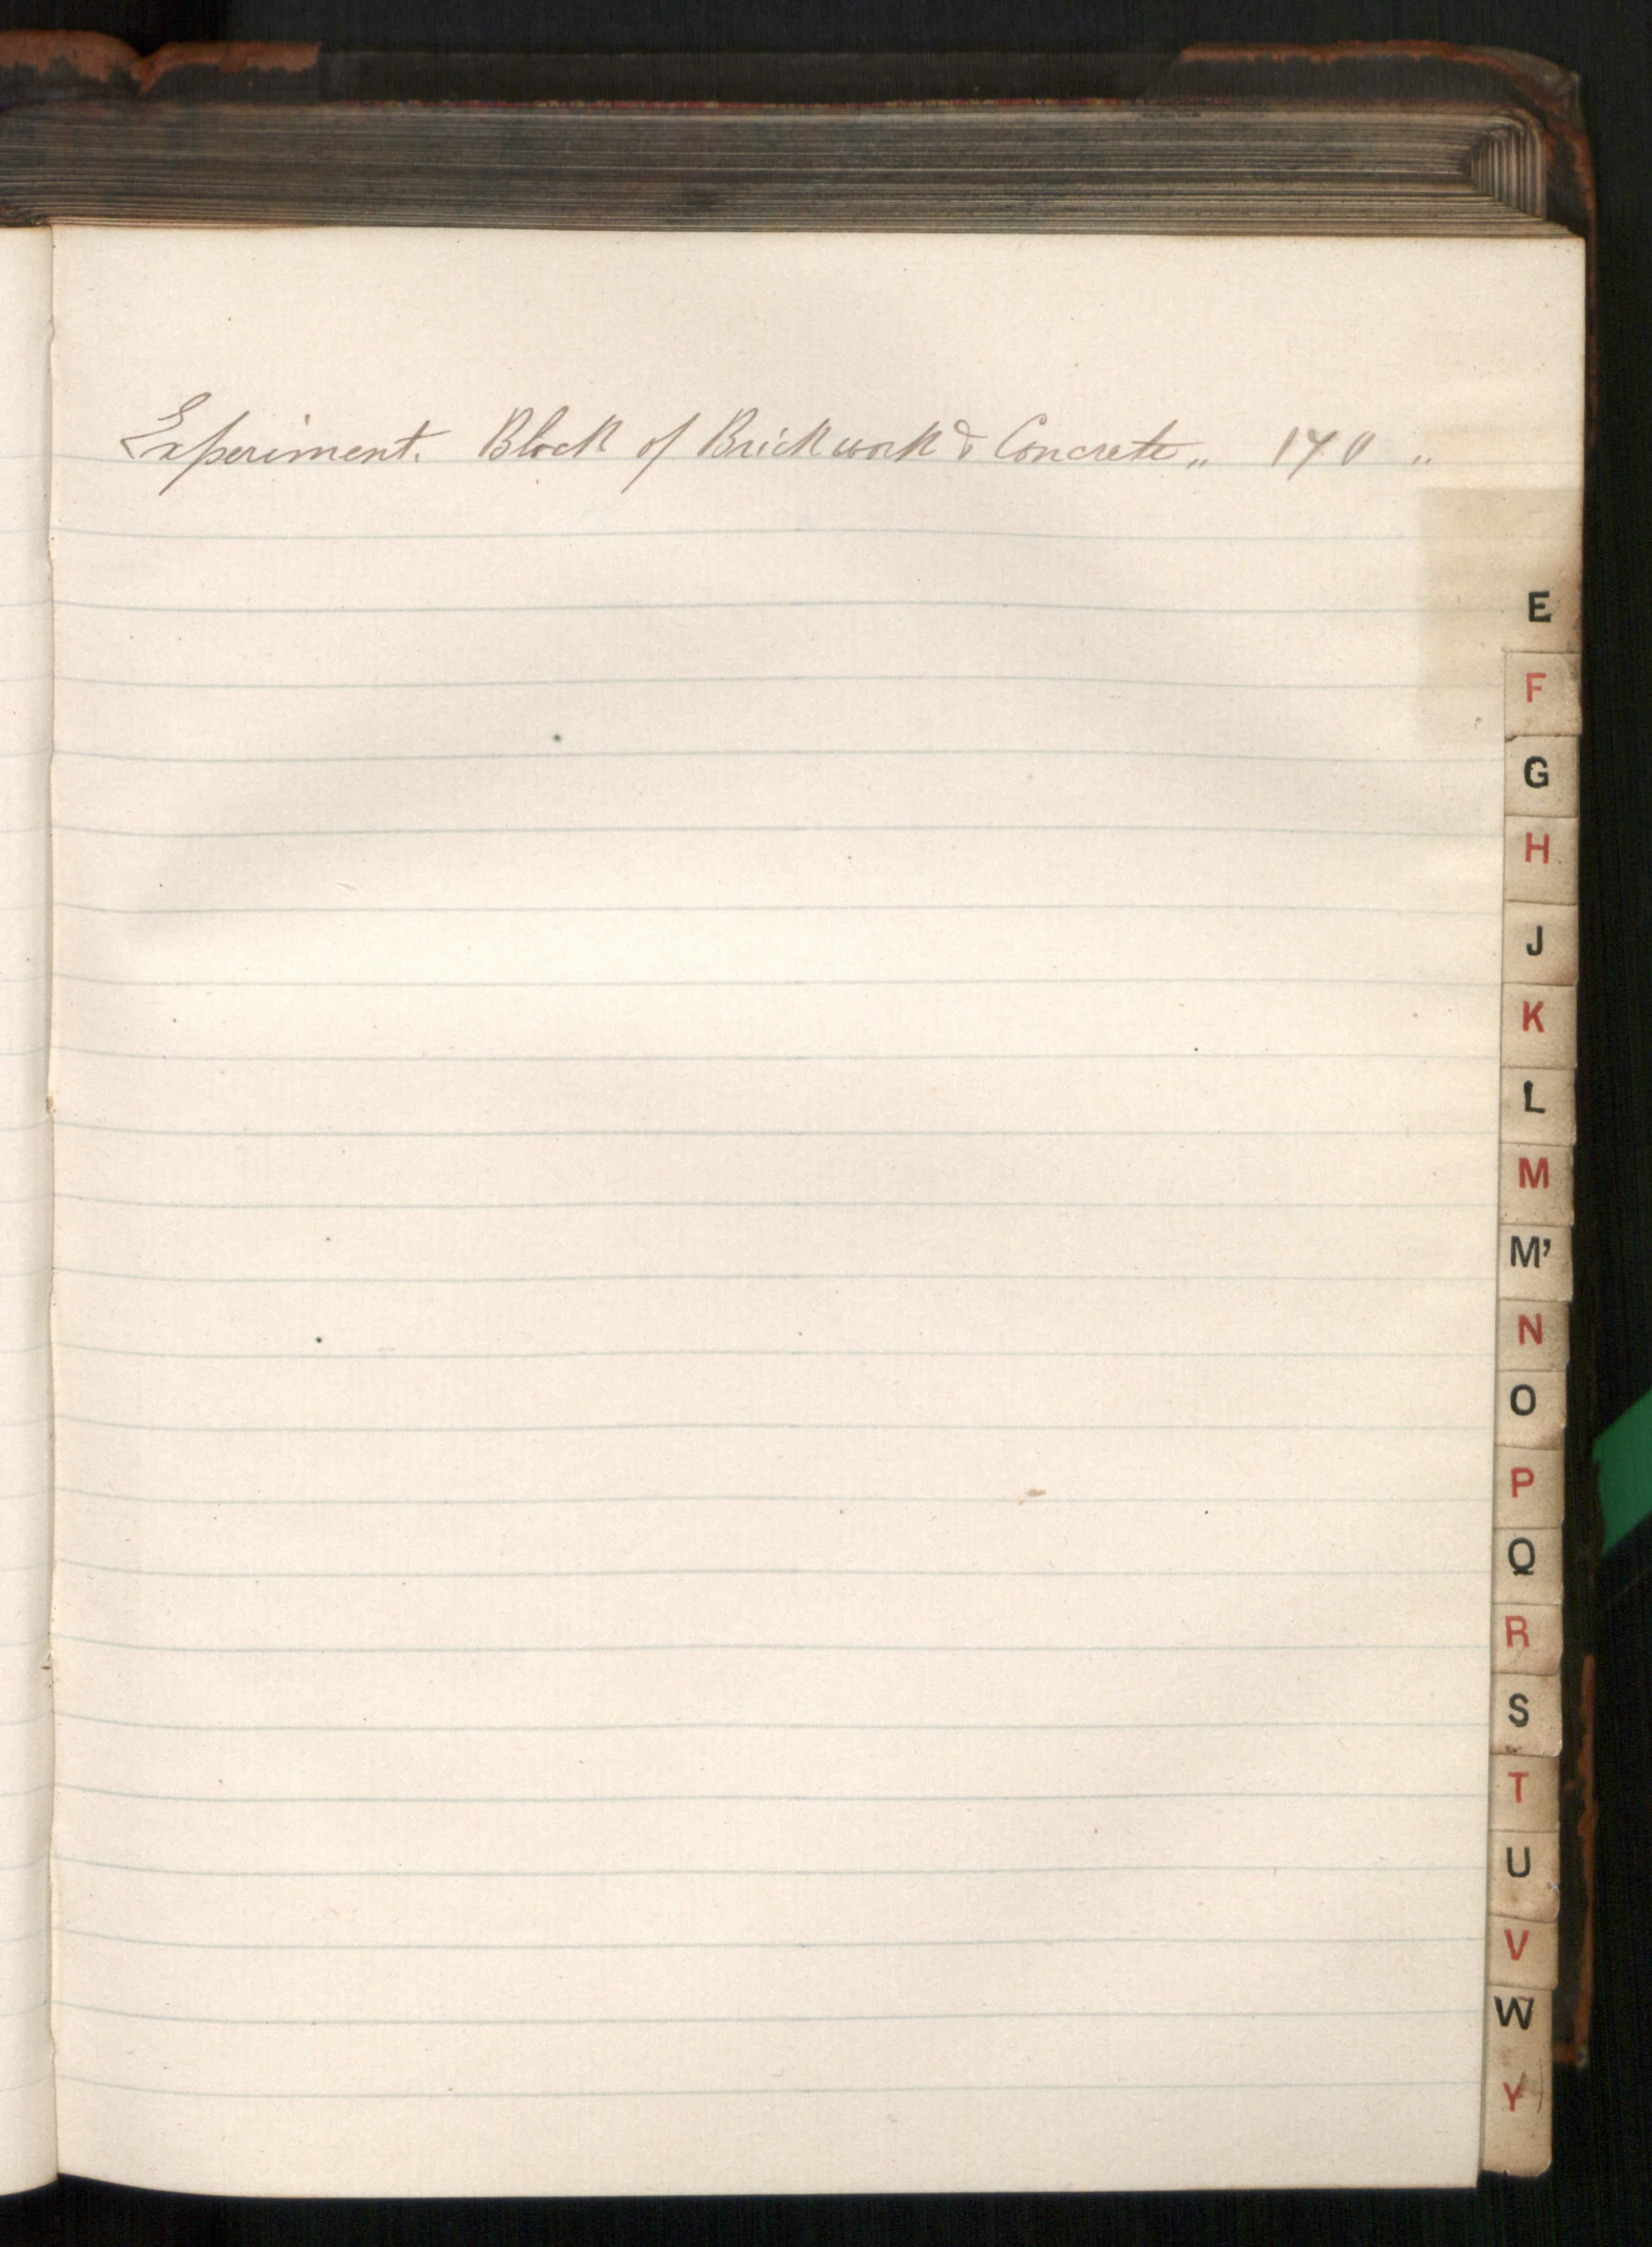 Experiment. Block of Brickwork & Concrete „ 170 „
E
F
G
H
J
K
L
M
M'
N
O
P
Q
R
S
T
U
V
W
Y